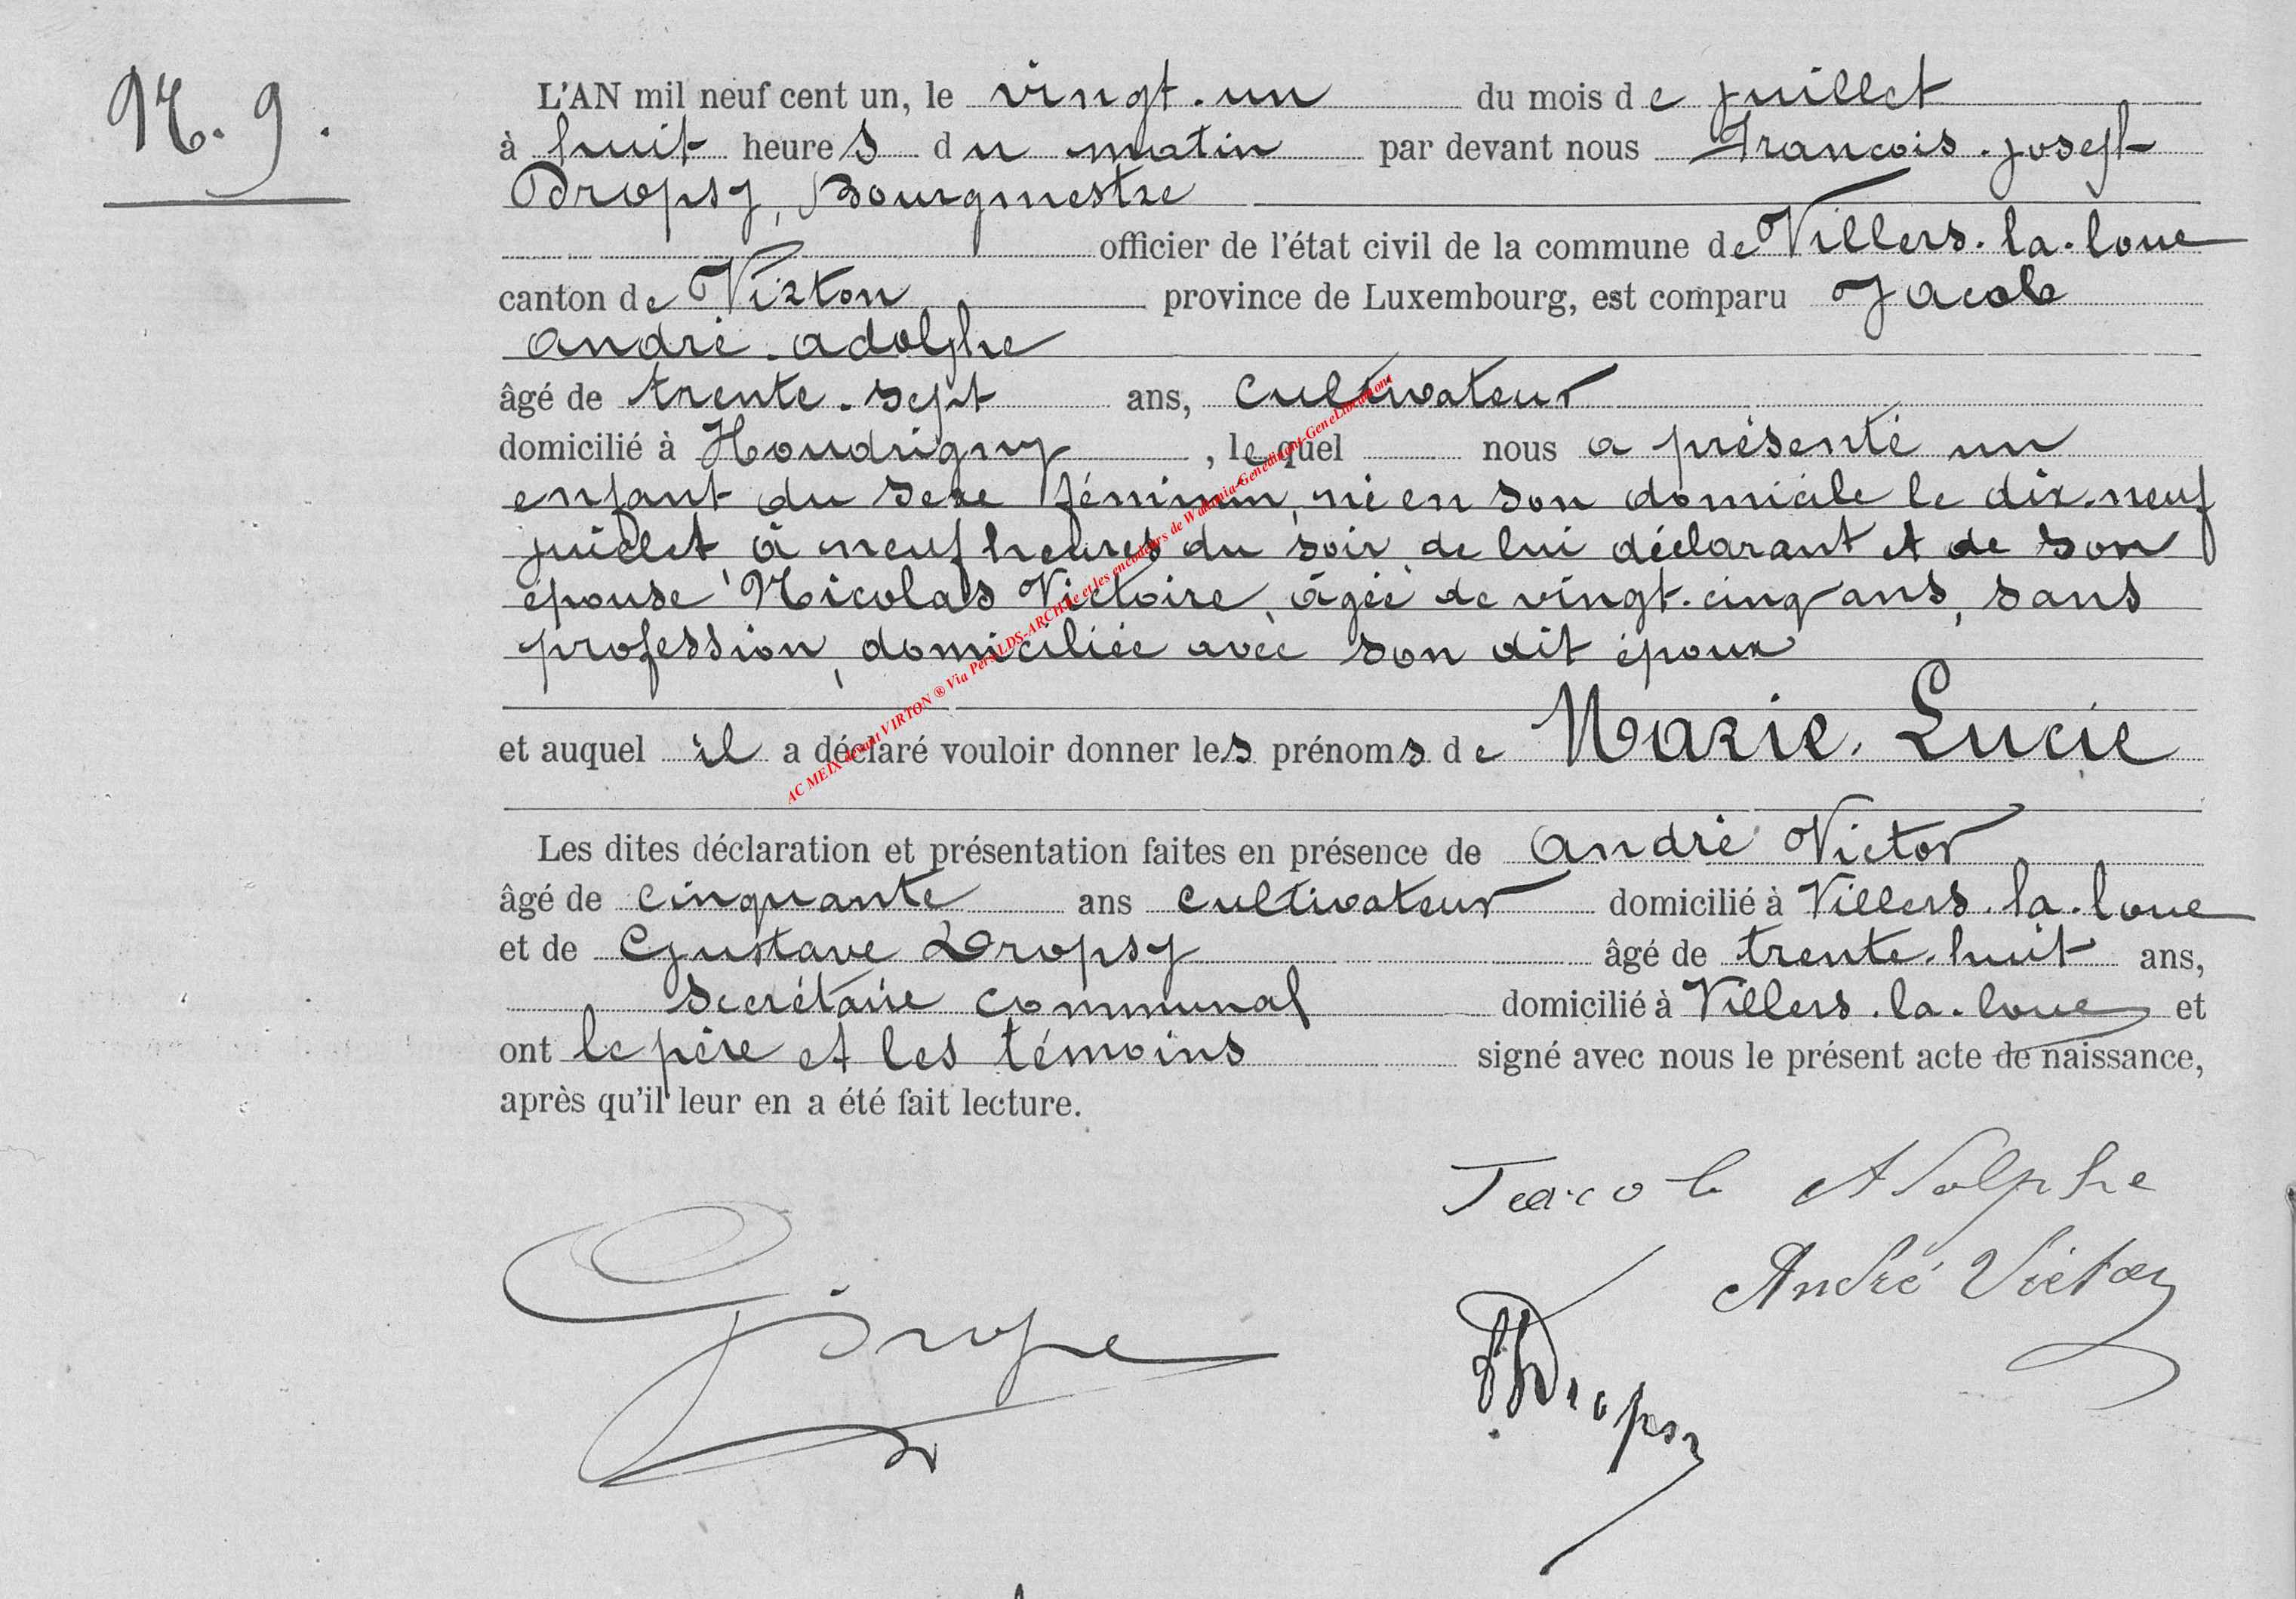 N. 9.
L'AN mil neuf cent un, le vingt-un du mois de juillet
à huit heures du matin par devant nous François-joseph
Dropsy, Bourgmestre
officier de l'état civil de la commune de Villers-la-loue
canton de Virton province de Luxembourg, est comparu Jacob
andré-adolphe
âgé de trente-sept ans, cultivateur
domicilié à Houdrigny, lequel nous a présenté un
enfant du sexe féminin, né en son domicile le dix-neuf
juillet à neuf heures du soir, de lui déclarant et de son
épouse Nicolas Victoire, âgée de vingt-cinq ans, sans
profession, domiciliée avec son dit époux
et auquel il a déclaré vouloir donner les prénoms de Marie-Lucie
Les dites déclaration et présentation faites en présence de andré Victor
âgé de cinquante ans cultivateur domicilié à Villers-la-loue
et de Gustave Dropsy âgé de trente-huit ans,
secrétaire communal domicilié à Villers-la-loue et
ont le père et les témoins signé avec nous le présent acte de naissance,
après qu'il leur en a été fait lecture.
Jacob Adolphe
André Victor
Dropsy
AC MEIX devant VIRTON ® Via PerALDS-ARCH et les encodeurs de Wallonia-Genedinant-GeneLibramont